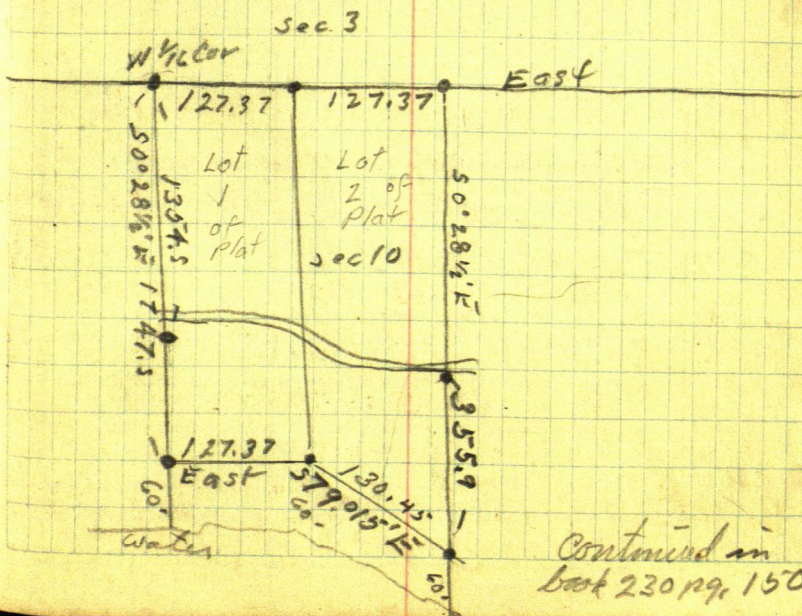 sec. 3
W 1/16 Cor
East
127.37
127.37
S0°28½'E 1747.5
1354.5
Lot
1
of
Plat
Lot
2 of
Plat
sec 10
S0°28½'E
355.9
127.37
East
130.45
S79°015'E
60-
60-
60'
water
Continued in
book 230 pg. 150